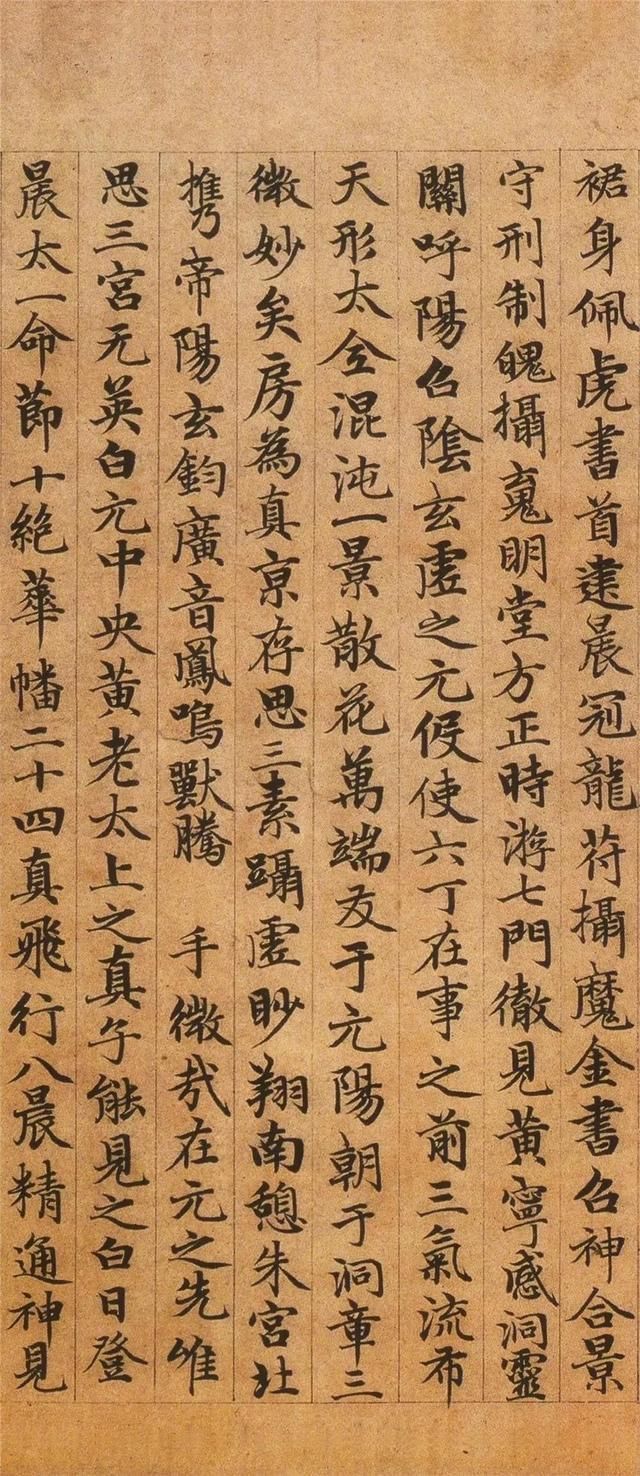 裙身佩虎書首建晨冠龍苻攝魔金書召神合景
守刑制魄攝䰟明堂方正時游七門徹見黃寧感洞靈
關呼陽召陰玄虛之元假使六丁在事之前三氣流布
天形太仝混沌一景散花萬端友于元陽朝于洞章三
微妙矣房為真亰存思三素躡虛眇翔南憩朱宮北
携帝陽玄鈞廣音鳳鳴獸騰 手微哉在元之先惟
思三宮无英白元中央黃老太上之真乍能見之白日登
晨太一命節十絕華幡二十四真飛行八晨精通神見